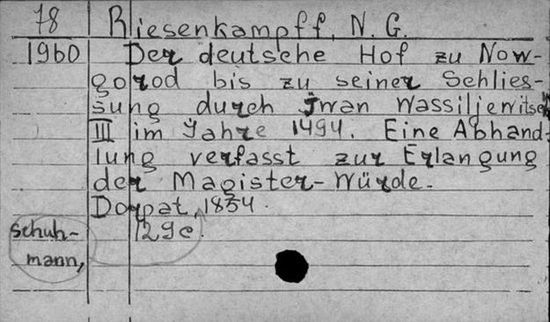 78 Riesenkampff, N. G.
1960 Der deutsche Hof zu Now-
gorod bis zu seiner Schlies-
sung durch Iwan Wassiljewitsch
III im Jahre 1494. Eine Abhand-
lung verfasst zur Erlangung
der Magister-Würde.
Dorpat, 1834.
Schuh- 129c.
mann,